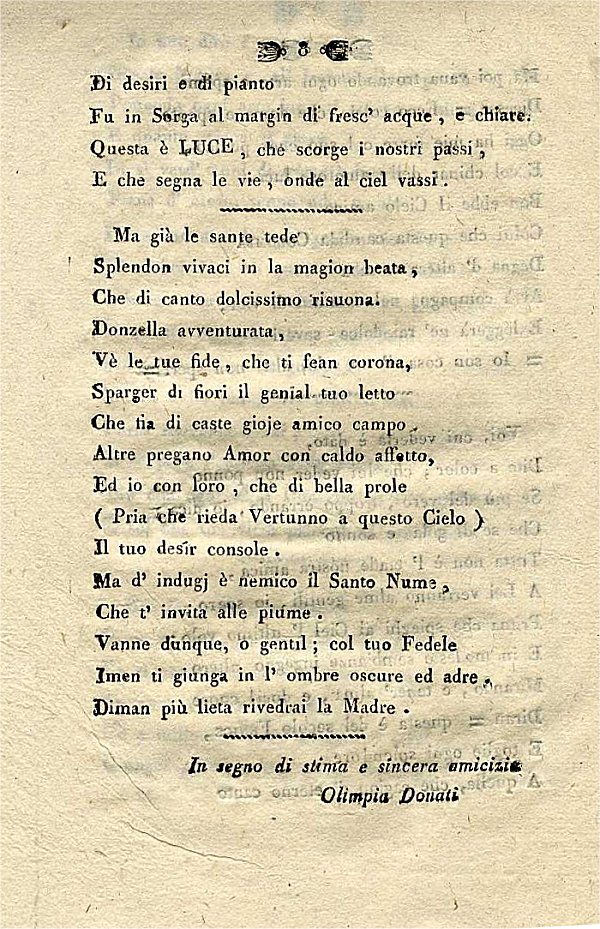 8
Di desiri e di pianto
Fu in Sorga al margin di fresc' acque, e chiare.
Questa è LUCE, che scorge i nostri passi,
E che segna le vie, onde al ciel vassi.
Ma già le sante tede
Splendon vivaci in la magion beata,
Che di canto dolcissimo risuona.
Donzella avventurata,
Vè le tue fide, che ti fean corona,
Sparger di fiori il genial tuo letto
Che fia di caste gioje amico campo
Altre pregano Amor con caldo affetto,
Ed io con loro, che di bella prole
( Pria che rieda Vertunno a questo Cielo )
Il tuo desir console.
Ma d' indugj è nemico il Santo Nume,
Che t' invita alle piume.
Vanne dunque, o gentil; col tuo Fedele
Imen ti giunga in l' ombre oscure ed adre,
Diman più lieta rivedrai la Madre.
In segno di stima e sincera amicizia
Olimpia Donati